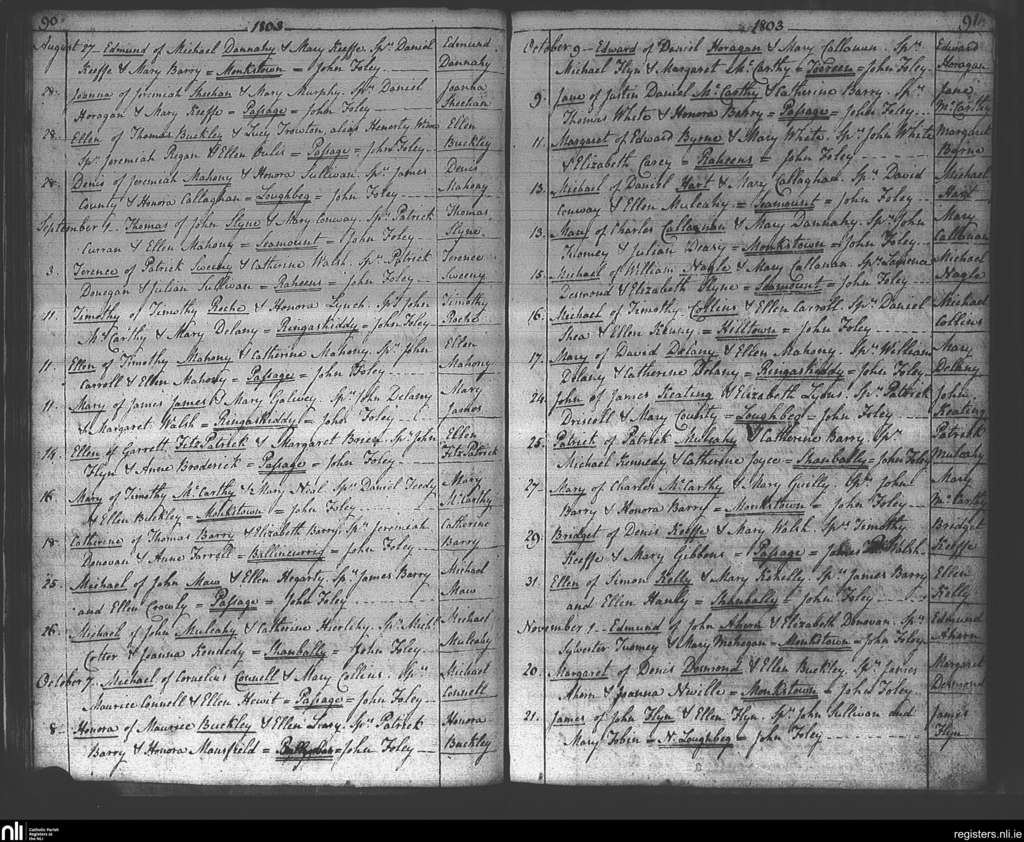 90
1803
August 27 - Edmund of Michael Dannahy & Mary Keeffe. Sprs Daniel
Edmund
Keeffe & Mary Barry = Monkstown = John Foley
Dannahy
28. Joanna of Jeremiah Sheehan & Mary Murphy. Sprs Daniel
Joanna
Horagan & Mary Keeffe = Passage = John Foley
Sheehan
28. Ellen of Thomas Buckley & Lucy alias
Ellen
Sprs Jeremiah Regan & Ellen = Passage = John Foley
Buckley
28. Denis of Jeremiah Mahony & Honora Sullivan. Sprs James
Denis
County & Honora Callaghan = Loughbeg = John Foley
Mahony
September 1 - Thomas of John Slyne & Mary Conway. Sprs Patrick
Thomas
Curran & Ellen Mahony = Seamount = John Foley
Slyne
3. Terence of Patrick Sweeny & Catherine Walsh. Sprs Patrick
Terence
Donegan & Julian Sullivan = Raheens = John Foley
Sweeny
11. Timothy of Timothy Roche & Honora Lynch. Sprs John
Timothy
McCarthy & Mary Delany = Ringaskiddy = John Foley
Roche
11. Ellen of Timothy Mahony & Catherine Mahony. Sprs John
Ellen
Carroll & Ellen Mahony = Passage = John Foley
Mahony
11. Mary of James James & Mary Galwey. Sprs John Delany
Mary
& Margaret Walsh = Ringaskiddy = John Foley
James
14. Ellen of Garrett FitzPatrick & Margaret Sprs John
Ellen
Flyn & Anne Broderick = Passage = John Foley
FitzPatrick
16. Mary of Timothy McCarthy & Mary Neil Sprs Daniel
Mary
& Ellen Buckley = Monkstown = John Foley
McCarthy
18. Catherine of Thomas Barry & Elizabeth Barry. Sprs Jeremiah
Catherine
Donovan & Anne Farrell = Ballincurrig = John Foley
Barry
25. Michael of John Maw & Ellen Hegarty. Sprs James Barry
Michael
and Ellen Crowly = Passage = John Foley
Maw
26. Michael of John Mulcahy & Catherine Hierlehy. Sprs Michl
Michael
Cotter & Joanna Kenedy = Shanbally = John Foley
Mulcahy
October 7. Michael of Cornelius Connell & Mary Collins. Sprs
Michael
Maurice Connell & Ellen Hewit = Passage = John Foley
Connell
8. Honora of Maurice Buckley & Ellen Sprs Patrick
Honora
Barry & Honora Mansfield = John Foley
Buckley
1803
91
October 9 - Edward of Daniel Horagan & Mary Callanan. Sprs
Edward
Michael Flyn & Margaret McCarthy = Toureen = John Foley
Horagan
9. Jane of Justin Daniel McCarthy & Catherine Barry. Sprs
Jane
Thomas White & Honora Barry = Passage = John Foley
McCarthy
11. Margaret of Edward Byrne & Mary White. Sprs John White
Margaret
& Elizabeth Carey = Raheens = John Foley
Byrne
13. Michael of Daniel Hart & Mary Callaghan. Sprs David
Michael
Conway & Ellen Mulcahy = Seamount = John Foley
Hart
13. Mary of Charles Callaghan & Mary Dannahy. Sprs John
Mary
Twomey & Julian Deasy = Monkstown = John Foley
Callanan
15. Michael of William Nagle & Mary Callanan. Sprs Laurence
Michael
Desmond & Elizabeth Slyne = Seamount = John Foley
Nagle
16. Michael of Timothy Collins & Ellen Carroll. Sprs Daniel
Michael
Shea & Ellen = Hilltown = John Foley
Collins
17. Mary of David Delany & Ellen Mahony. Sprs William
Mary
Delany & Catherine Delany = Ringaskiddy = John Foley
Delany
24. John of James Keating & Elizabeth Lyons. Sprs Patrick
John
Driscoll & Mary County = Loughbeg = John Foley
Keating
25. Patrick of Patrick Mulcahy & Catherine Barry. Sprs
Patrick
Michael Kennedy & Catherine Joyce = Shanbally = John Foley
Mulcahy
27. Mary of Charles McCarthy & Mary Sprs John
Mary
Barry & Honora Barry = Monkstown = John Foley
McCarthy
29. Bridget of Denis Keeffe & Mary Walsh. Sprs Timothy
Bridget
Keeffe & Mary Gibbons = Passage = James Walsh
Keeffe
31. Ellen of Simon Kelly & Mary Kehelly. Sprs James Barry
Ellen
and Ellen Hanly = Shanbally = John Foley
Kelly
November 1 - Edmund of John Ahern & Elizabeth Donovan. Sprs
Edmund
Sylvester Twomey & Mary Mahegan = Monkstown = John Foley
Ahern
20. Margaret of Denis Desmond & Ellen Buckley. Sprs James
Margaret
Ahern & Joanna Neville = Monkstown = John Foley
Desmond
21. James of John Flyn & Ellen Flyn. Sprs John Sullivan and
James
Mary Tobin = N. Loughbeg = John Foley
Flyn
nli
Catholic Parish
Registers at
the NLI
registers.nli.ie